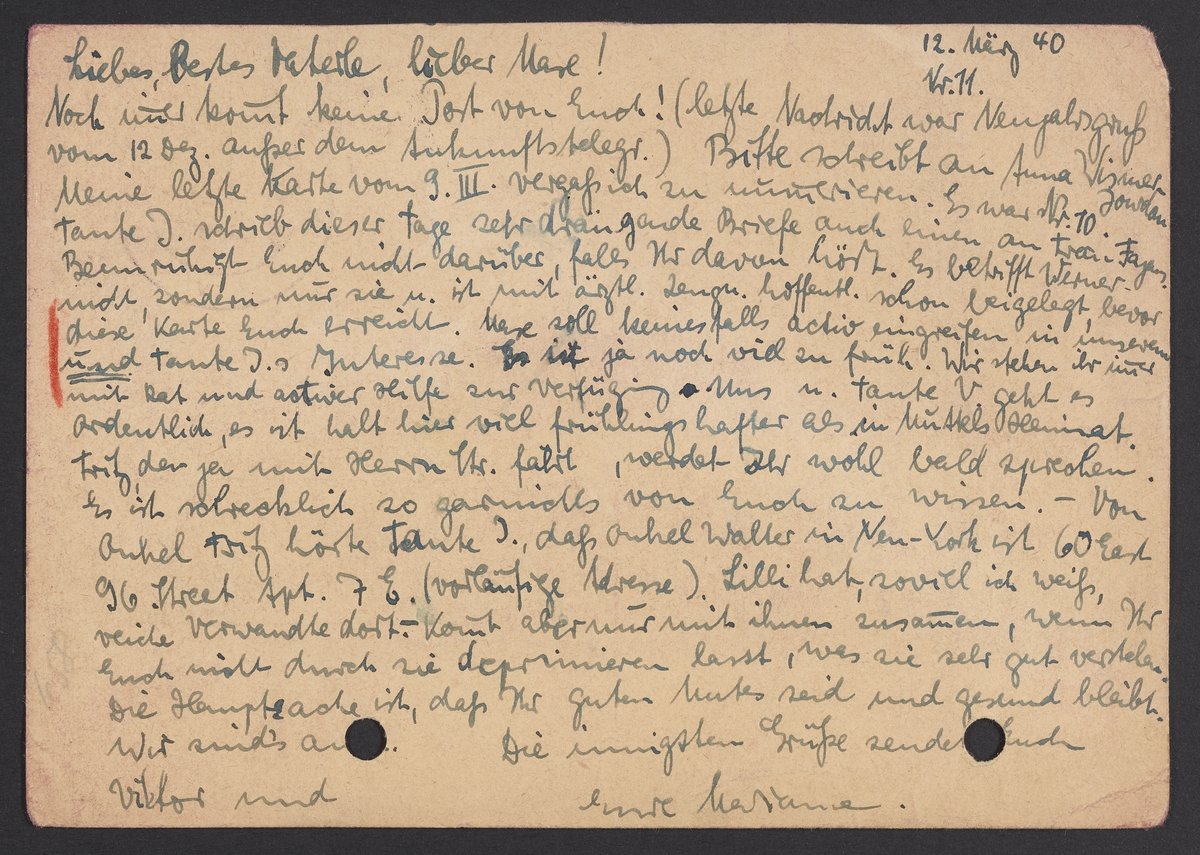 12. März 40
Nr. 11.
Liebes, Bestes Vaterle, lieber Maxe!
Noch im̅er kom̅t keine Post von Euch! (letzte Nachricht war Neujahrsgruß
vom 12 Dez. außer dem Ankunftstelegr.) Bitte schreibt an Anna Wismer-
Meine letzte Karte vom 9. III. vergaß ich zu num̅erieren. Es war Nr. 10
Tante J. schrieb dieser Tage sehr drängende Briefe auch einen an
Beunruhigt Euch nicht darüber, falls Ihr davon hört. Es betrifft Werner
nicht, sondern nur sie u. ist mit ärztl. Zeugn. hoffentl. schon beigelegt, bevor
diese Karte Euch erreicht. Maxe soll keinesfalls activ eingreifen in unserem
und Tante J.s Interesse. Es ist ja noch viel zu früh. Wir stehen ihr im̅er
mit Rat und activer Hilfe zur Verfügung. Uns u. Tante V geht es
ordentlich, es ist halt hier viel frühlingshafter als in Muttels Heimat.
Fritz, den ja mit Herrn Str. fährt, werdet Ihr wohl bald sprechen.
Es ist schrecklich so garnichts von Euch zu wissen. – Von
Onkel Fritz hörte Tante J., daß Onkel Walter in New-York ist (60 East
96 Street Apt. 7 E. (vorläufige Adresse). Lilli hat, soviel ich weiß,
reiche Verwandte dort. – Kom̅t aber nur mit ihnen zusam̅en, wenn Ihr
Euch nicht durch sie deprimieren lasst, was sie sehr gut verstehen.
Die Hauptsache ist, daß Ihr guten Mutes seid und gesund bleibt.
Wir sind's Die innigsten Grüße sendet Euch
Viktor und Eure Marianne.